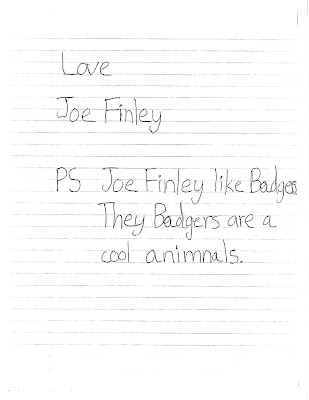 Love
Joe Finley
PS Joe Finley like Badgers
They Badgers are a
cool animnals.